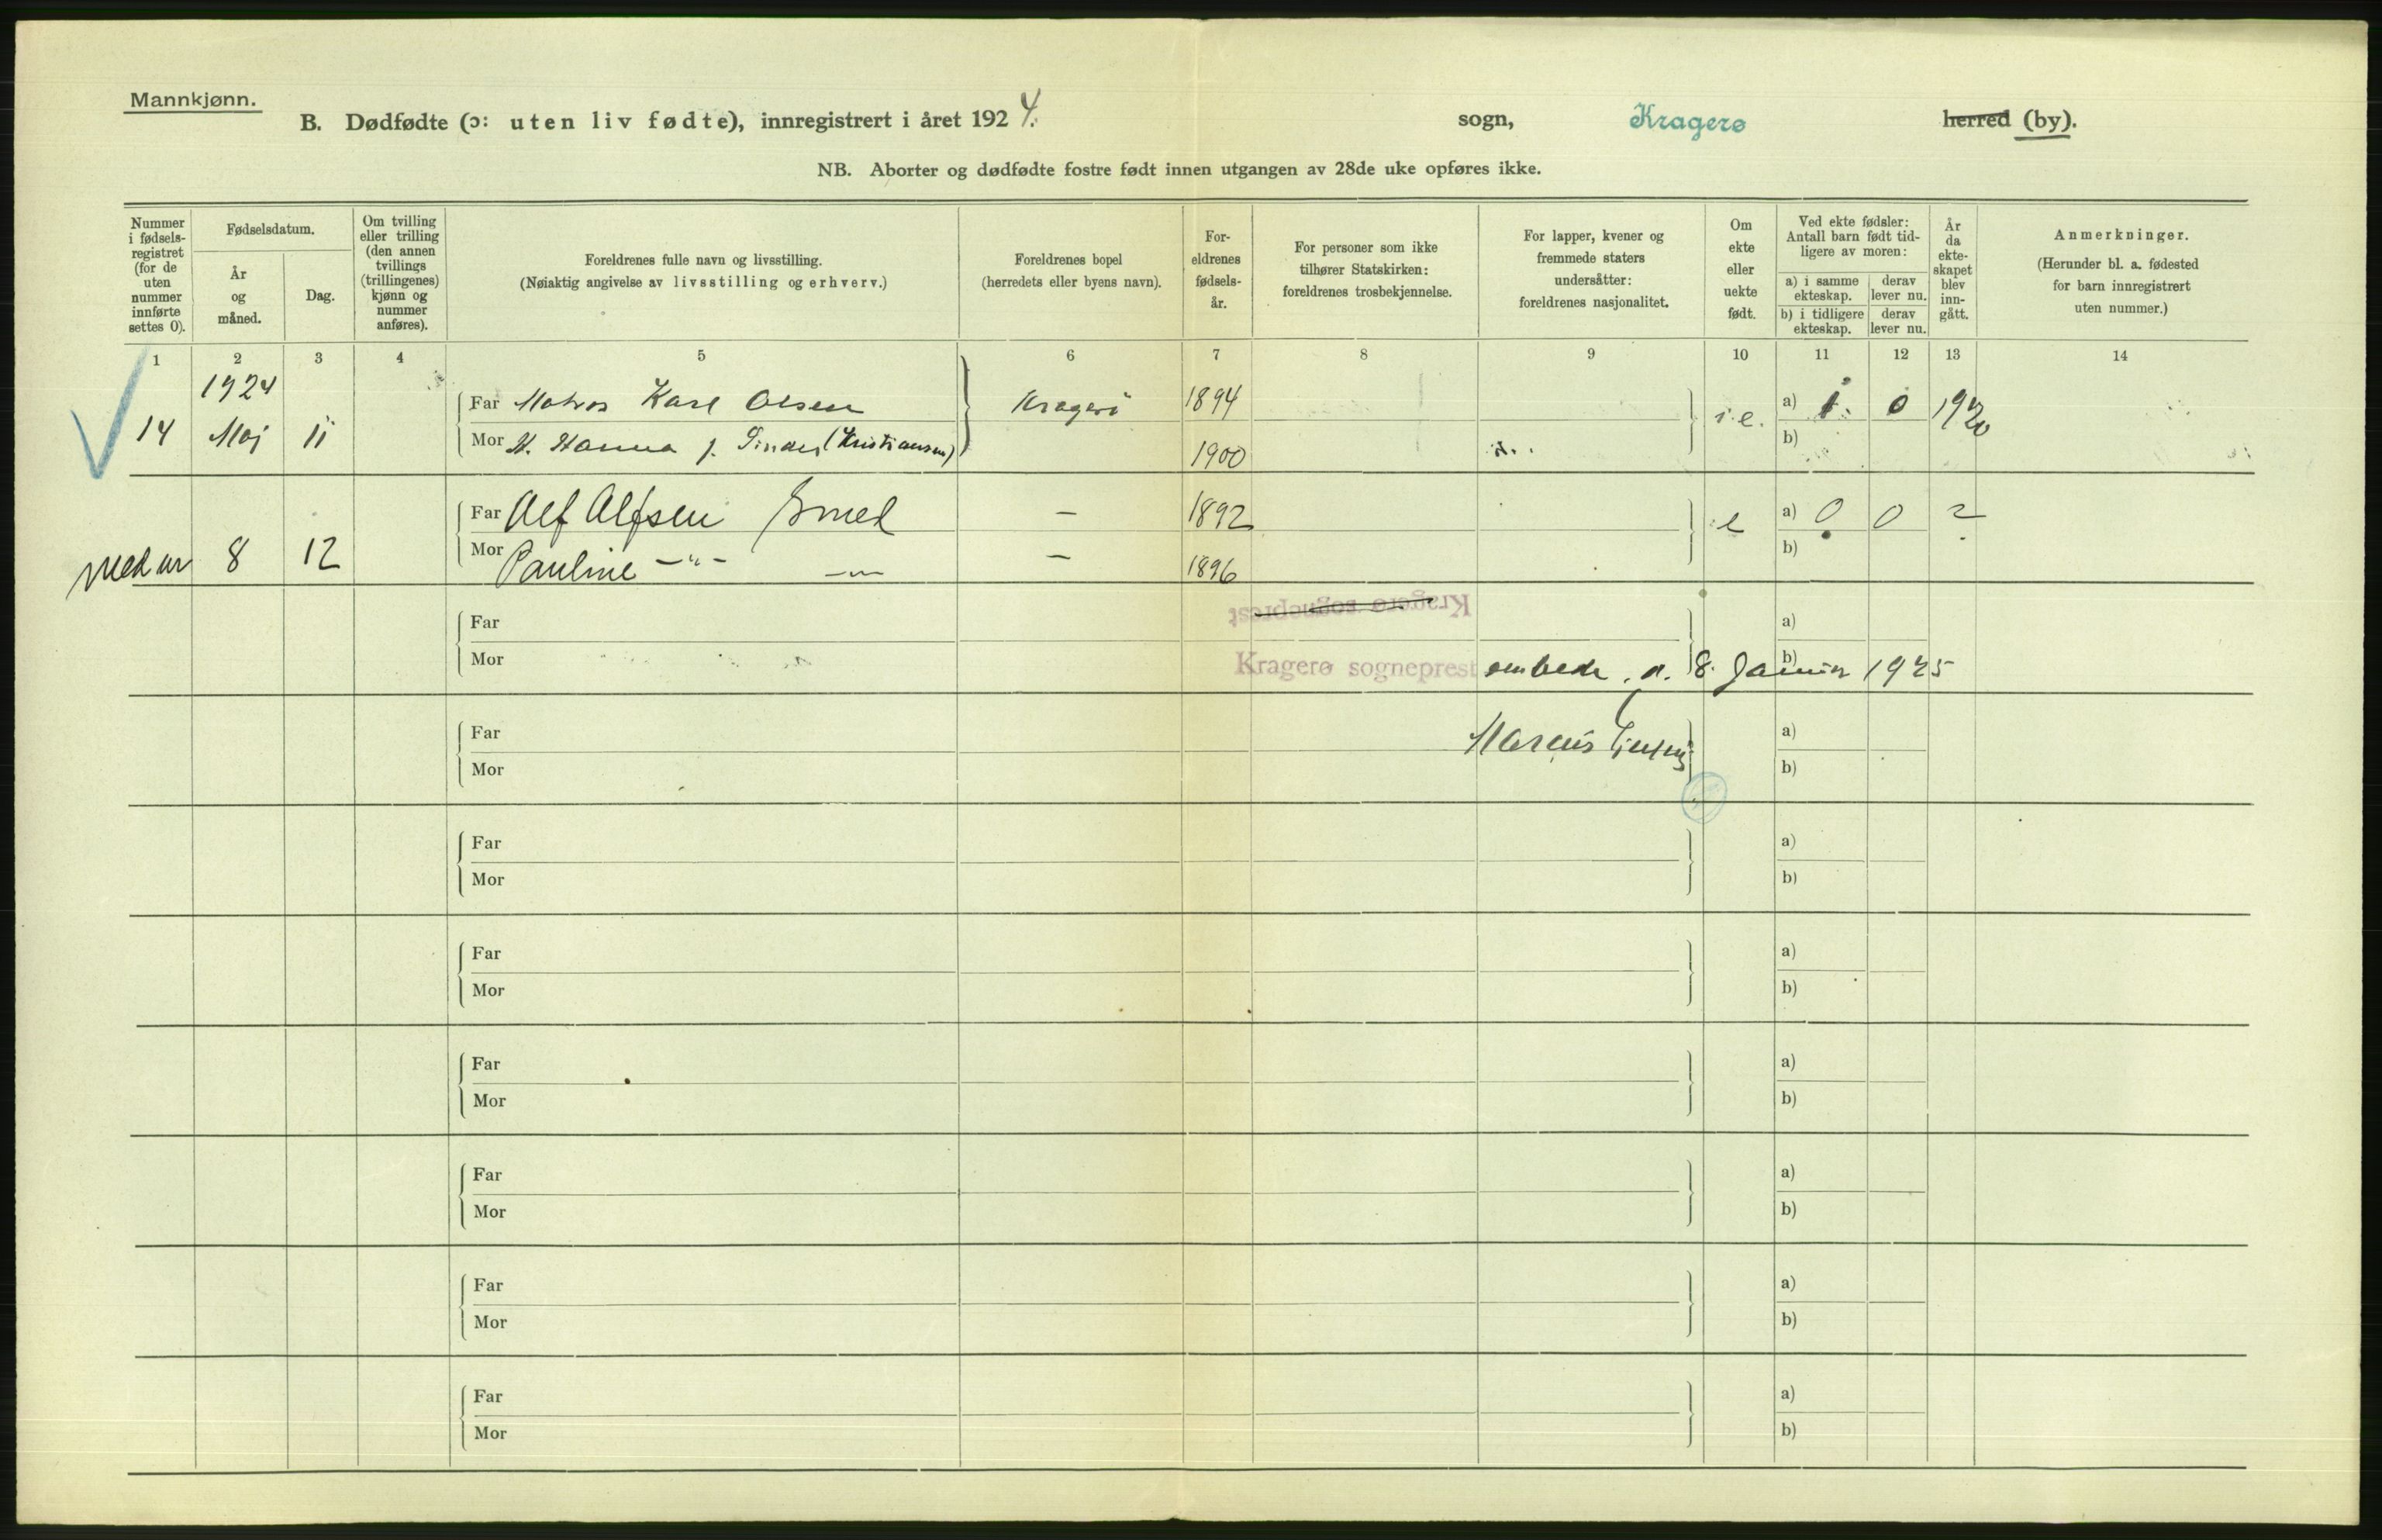 Mannkjønn.
B. Dødfødte (ɔ: uten liv fødte), innregistrert i året 1924. sogn, Kragerø herred (by).
NB. Aborter og dødfødte fostre født innen utgangen av 28de uke opføres ikke.
Nummer i fødsels-registret (for de uten nummer innførte settes 0).
Fødselsdatum.
År og måned.
Dag.
Om tvilling eller trilling (den annen tvillings (trillingenes) kjønn og nummer anføres).
Foreldrenes fulle navn og livsstilling.
(Nøiaktig angivelse av livsstilling og erhverv.)
Foreldrenes bopel
(herredets eller byens navn).
For-eldrenes fødsels-år.
For personer som ikke tilhører Statskirken: foreldrenes trosbekjennelse.
For lapper, kvener og fremmede staters undersåtter: foreldrenes nasjonalitet.
Om ekte eller uekte født.
Ved ekte fødsler: Antall barn født tid-ligere av moren:
a) i samme ekteskap. derav lever nu.
b) i tidligere ekteskap. derav lever nu.
År da ekte-skapet blev inn-gått.
Anmerkninger.
(Herunder bl. a. fødested for barn innregistrert uten nummer.)
1 2 3 4 5 6 7 8 9 10 11 12 13 14
1924
14 Maj 11 Far Matros Karl Olsen Kragerö 1894 e. a) 1. 0 1920
Mor Hanna (Kristiansen) 1900 b)
Far Alf Alfsen Smed — 1892 e a) 0 0 2
8 12 Mor Pauline —"— — — 1896 b)
Kragerø sogneprest
Far a)
Mor Kragerø sogneprest embede, d. 8. Januar 1925 b)
Far Marcus a)
Mor b)
Far a)
Mor b)
Far a)
Mor b)
Far a)
Mor b)
Far a)
Mor b)
Far a)
Mor b)
Far a)
Mor b)